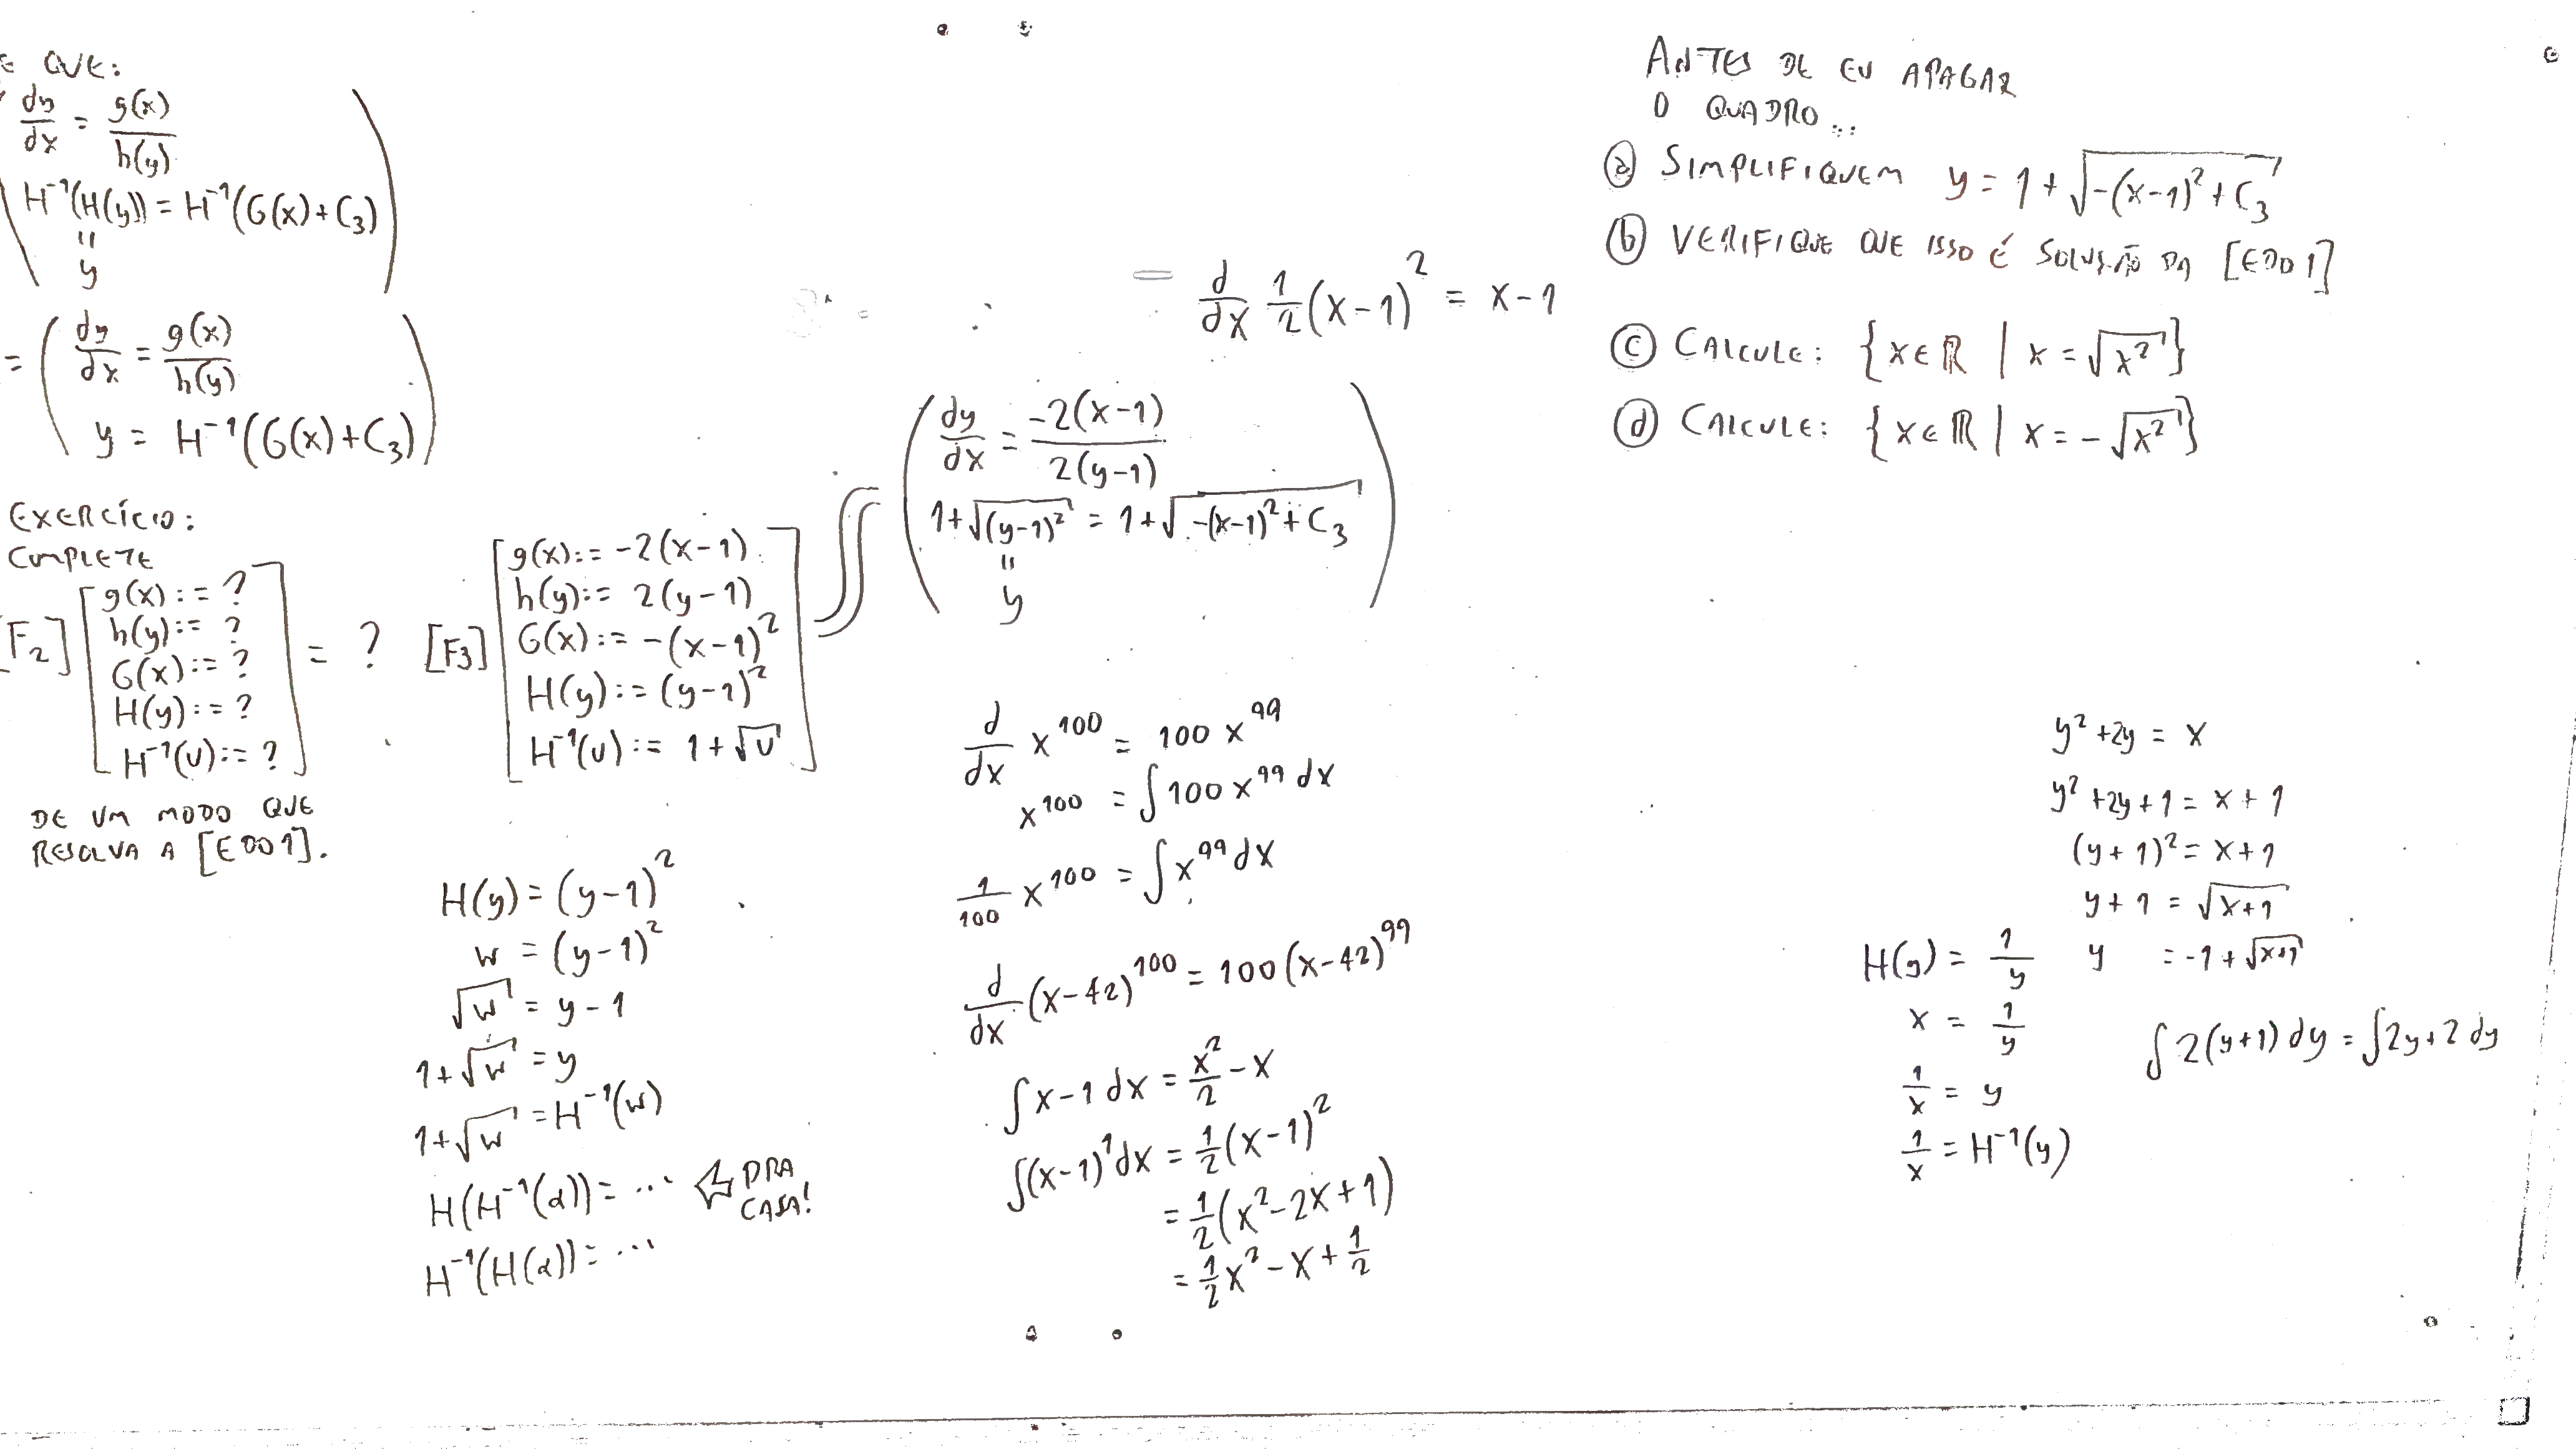 E QUE:
dy/dx = g(x)/h(y)
H⁻¹(H(y)) = H⁻¹(G(x)+C₃)
"
y
= ( dy/dx = g(x)/h(y)
y = H⁻¹(G(x)+C₃) )
EXERCÍCIO:
COMPLETE
[F₂] [ g(x):= ?
h(y):= ?
G(x):= ?
H(y):= ?
H⁻¹(u):= ? ] = ?
DE UM MODO QUE
RESOLVA A [EDO1].
[F3] [ g(x):= -2(x-1)
h(y):= 2(y-1)
G(x):= -(x-1)²
H(y):= (y-1)²
H⁻¹(u):= 1+√u ]
H(y) = (y-1)²
w = (y-1)²
√w = y-1
1+√w = y
1+√w = H⁻¹(w)
H(H⁻¹(α)) = ... ⇐ PRA CASA!
H⁻¹(H(α)) = ...
= d/dx 1/2 (x-1)² = x-1
( dy/dx = -2(x-1)/2(y-1)
1+√(y-1)² = 1+√-(x-1)²+C₃
"
y )
d/dx x¹⁰⁰ = 100 x⁹⁹
x¹⁰⁰ = ∫100 x⁹⁹ dx
1/100 x¹⁰⁰ = ∫x⁹⁹ dx
d/dx (x-42)¹⁰⁰ = 100(x-42)⁹⁹
∫x-1 dx = x²/2 - x
∫(x-1)¹dx = 1/2(x-1)²
= 1/2(x²-2x+1)
= 1/2x²-x+1/2
ANTES DE EU APAGAR
O QUADRO...
(a) SIMPLIFIQUEM y = 1+√-(x-1)²+C₃
(b) VERIFIQUE QUE ISSO É SOLUÇÃO DA [EDO1]
(c) CALCULE: {x∈ℝ | x=√x²}
(d) CALCULE: {x∈ℝ | x=-√x²}
y²+2y = x
y²+2y+1 = x+1
(y+1)² = x+1
y+1 = √x+1
y = -1+√x+1
H(y) = 1/y
x = 1/y
1/x = y
1/x = H⁻¹(y)
∫2(y+1) dy = ∫2y+2 dy